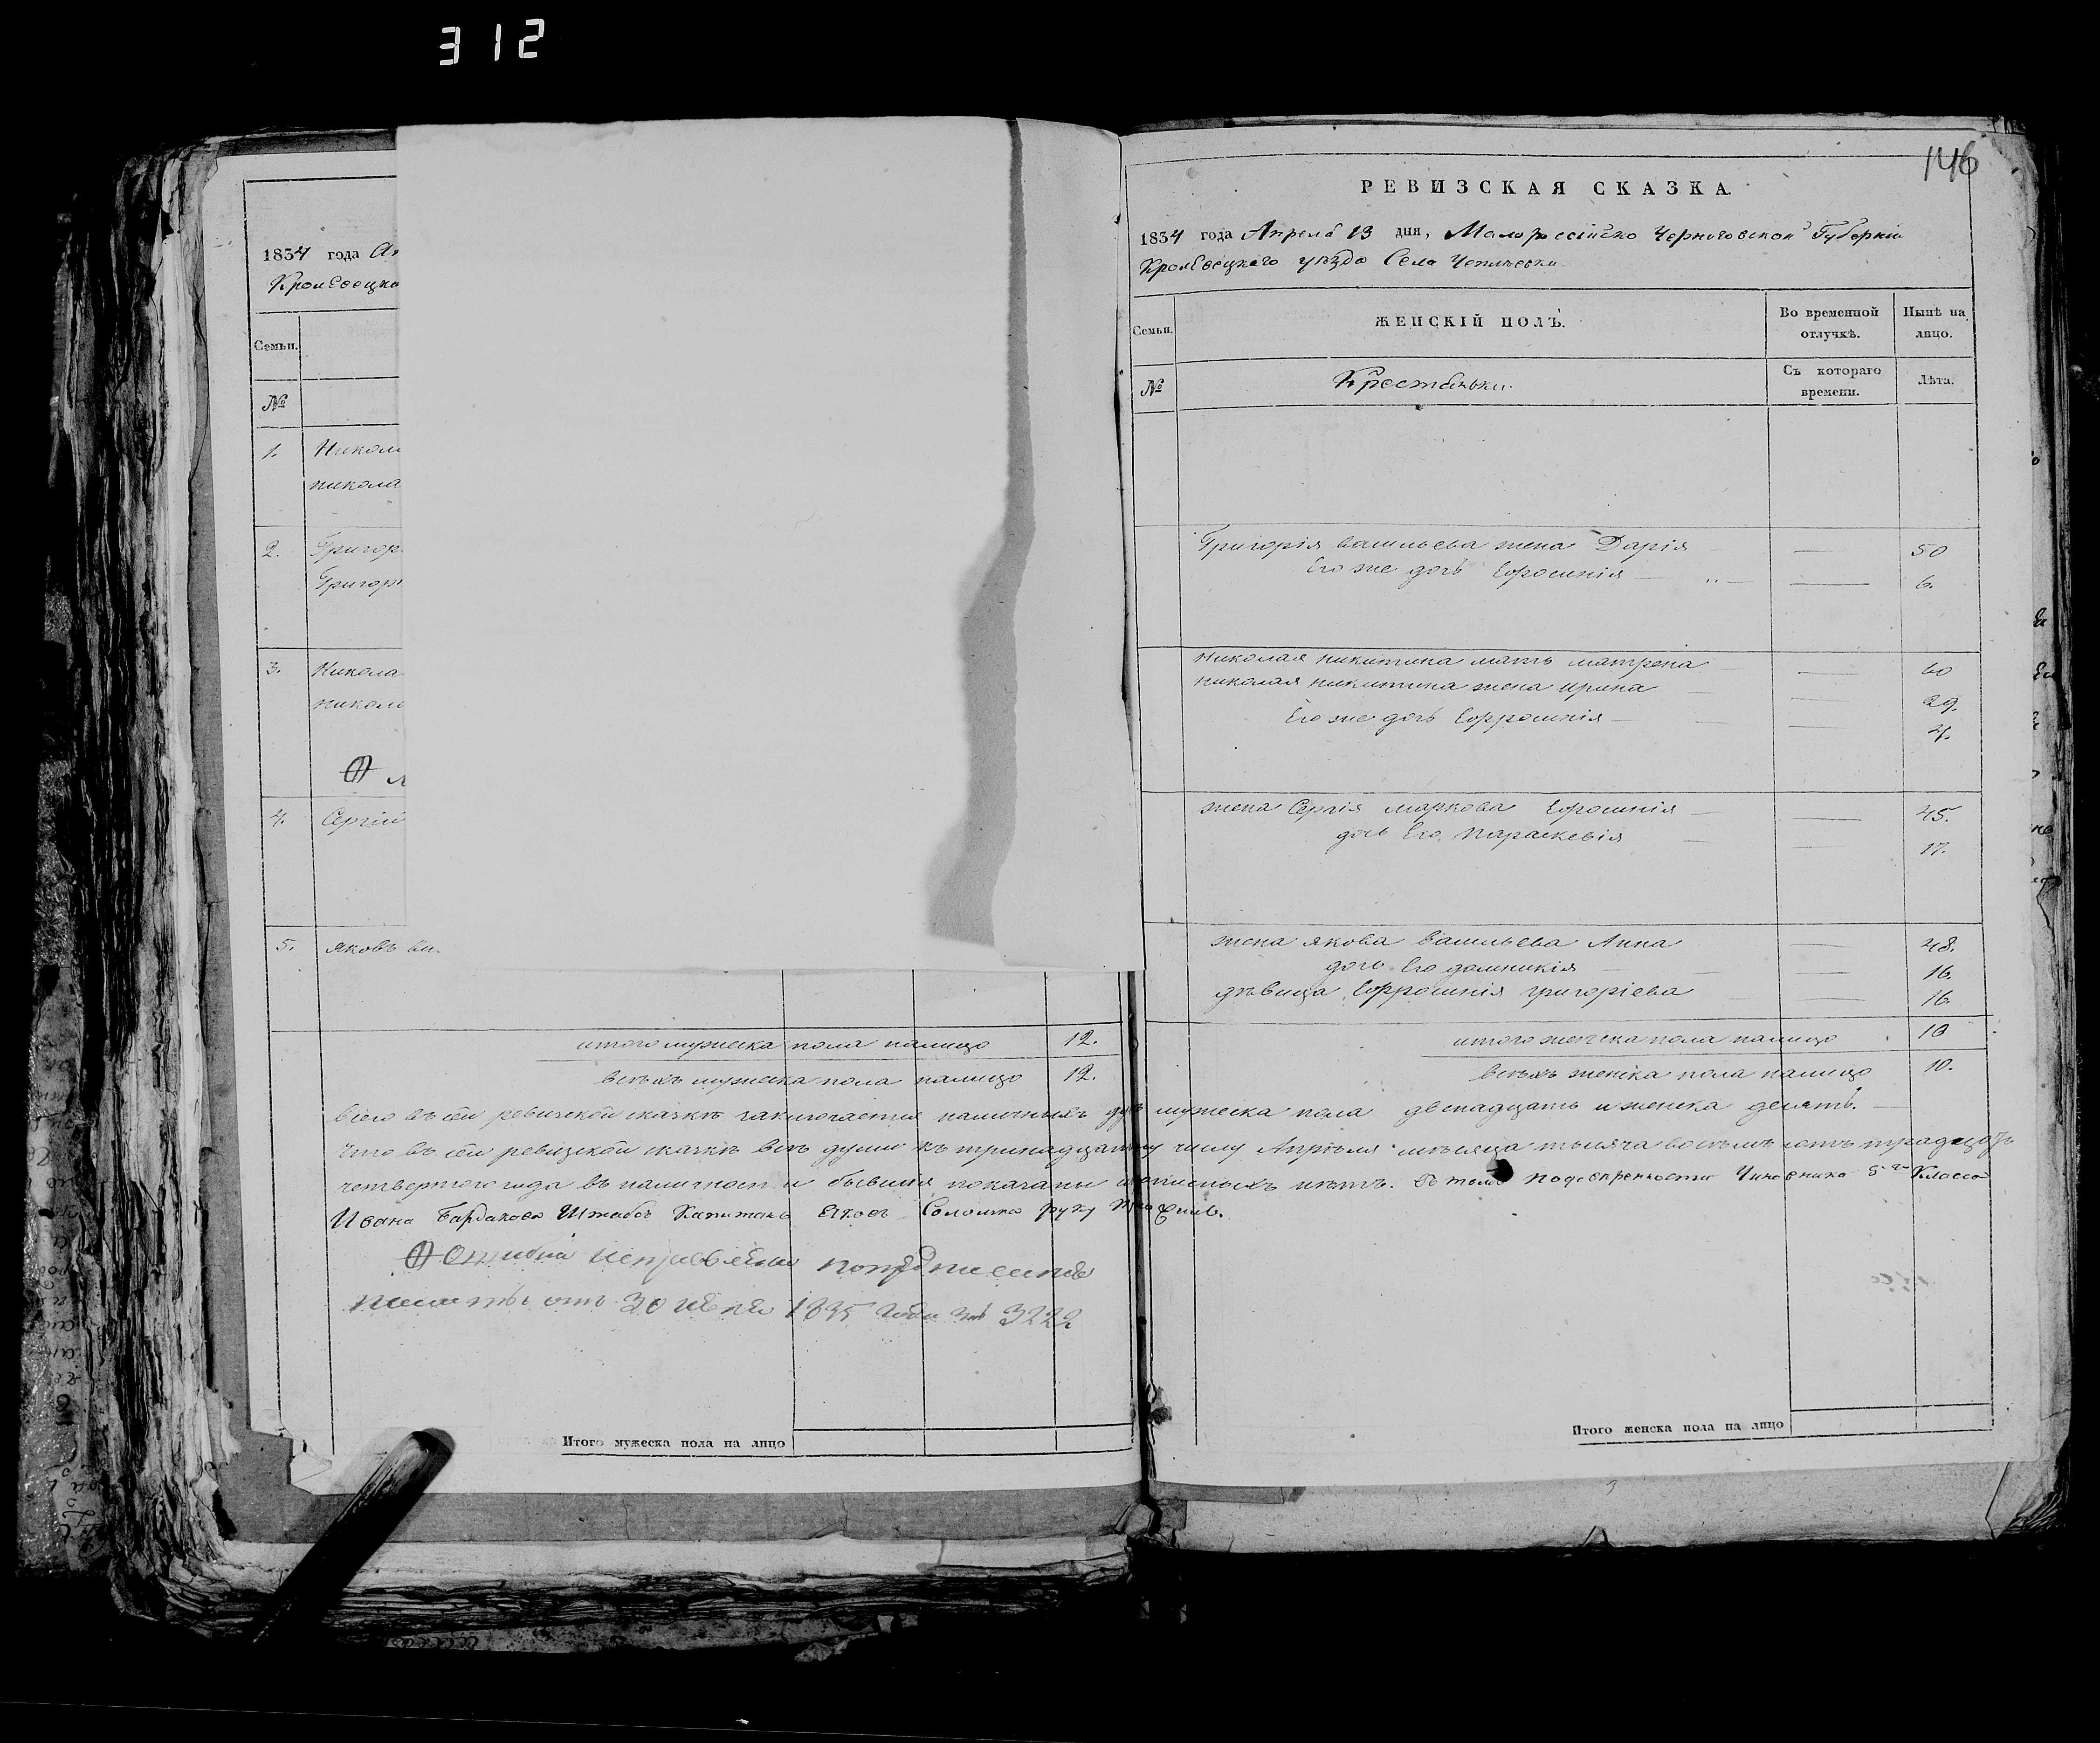 312
1834 года Ап
Кролевецка
Семьи.
№
1. Никола
никола
2. Григор
Григор
3. Никола
никола
4. Сергій
5. Яковъ ва
итого мужеска пола налицо 12.
всехъ мужеска пола налицо 12.
146
РЕВИЗСКАЯ СКАЗКА.
1834 года Апреля 13 дня, Малороссійско Черниговской Губерніи
Кролевецкаго уѣзда Села Чепліевки
Семьи. ЖЕНСКІЙ ПОЛЪ. Во временной отлучкѣ. Нынѣ на лицо.
№ Крестьянки. Съ котораго времени. Лѣта.
Григорія васильева жена Дарія 50
Его же дочь Ефросинія 6.
Николая никитина мать матрена 60
николая никитина жена ирина 29.
Его же дочь Еффросинія 4.
жена Сергія маркова Ефросинія 45.
дочь Его Параскевія 17.
жена якова васильева Анна 48.
дочь Его домникія 16.
дѣвица Еффросинія григоріева 16.
итого женска пола налицо 10
всехъ женска пола налицо 10.
всего въ сей ревизской сказкѣ заключается наличныхъ душ мужеска пола двенадцать и женска десять.
Что въ сей ревизской сказкѣ всѣ души къ тринадцатому числу Апрѣля месяца тысяча восемь сотъ тридцать
четвертого года въ наличности бывшия показаны и прописныхъ нѣтъ. В томъ по доверенности Чиновника 5го Класса
Ивана Бардакова Штабсъ Капитанъ Соломка руку приложилъ.
Ошибка исправлена по предписанію
палаты отъ 30 1835 года за 3222
Итого мужеска пола на лицо
Итого женска пола на лицо